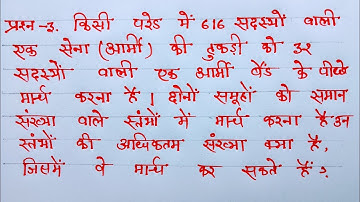 प्रश्न-3. किसी परेड में 616 सदस्यों वाली
एक सेना (आर्मी) की टुकड़ी को 32
सदस्यों वाली एक आर्मी बैंड के पीछे
मार्च करना है। दोनों समूहों को समान
संख्या वाले स्तंभों में मार्च करना है उन
स्तंभों की अधिकतम संख्या क्या है,
जिसमें वे मार्च कर सकते हैं?